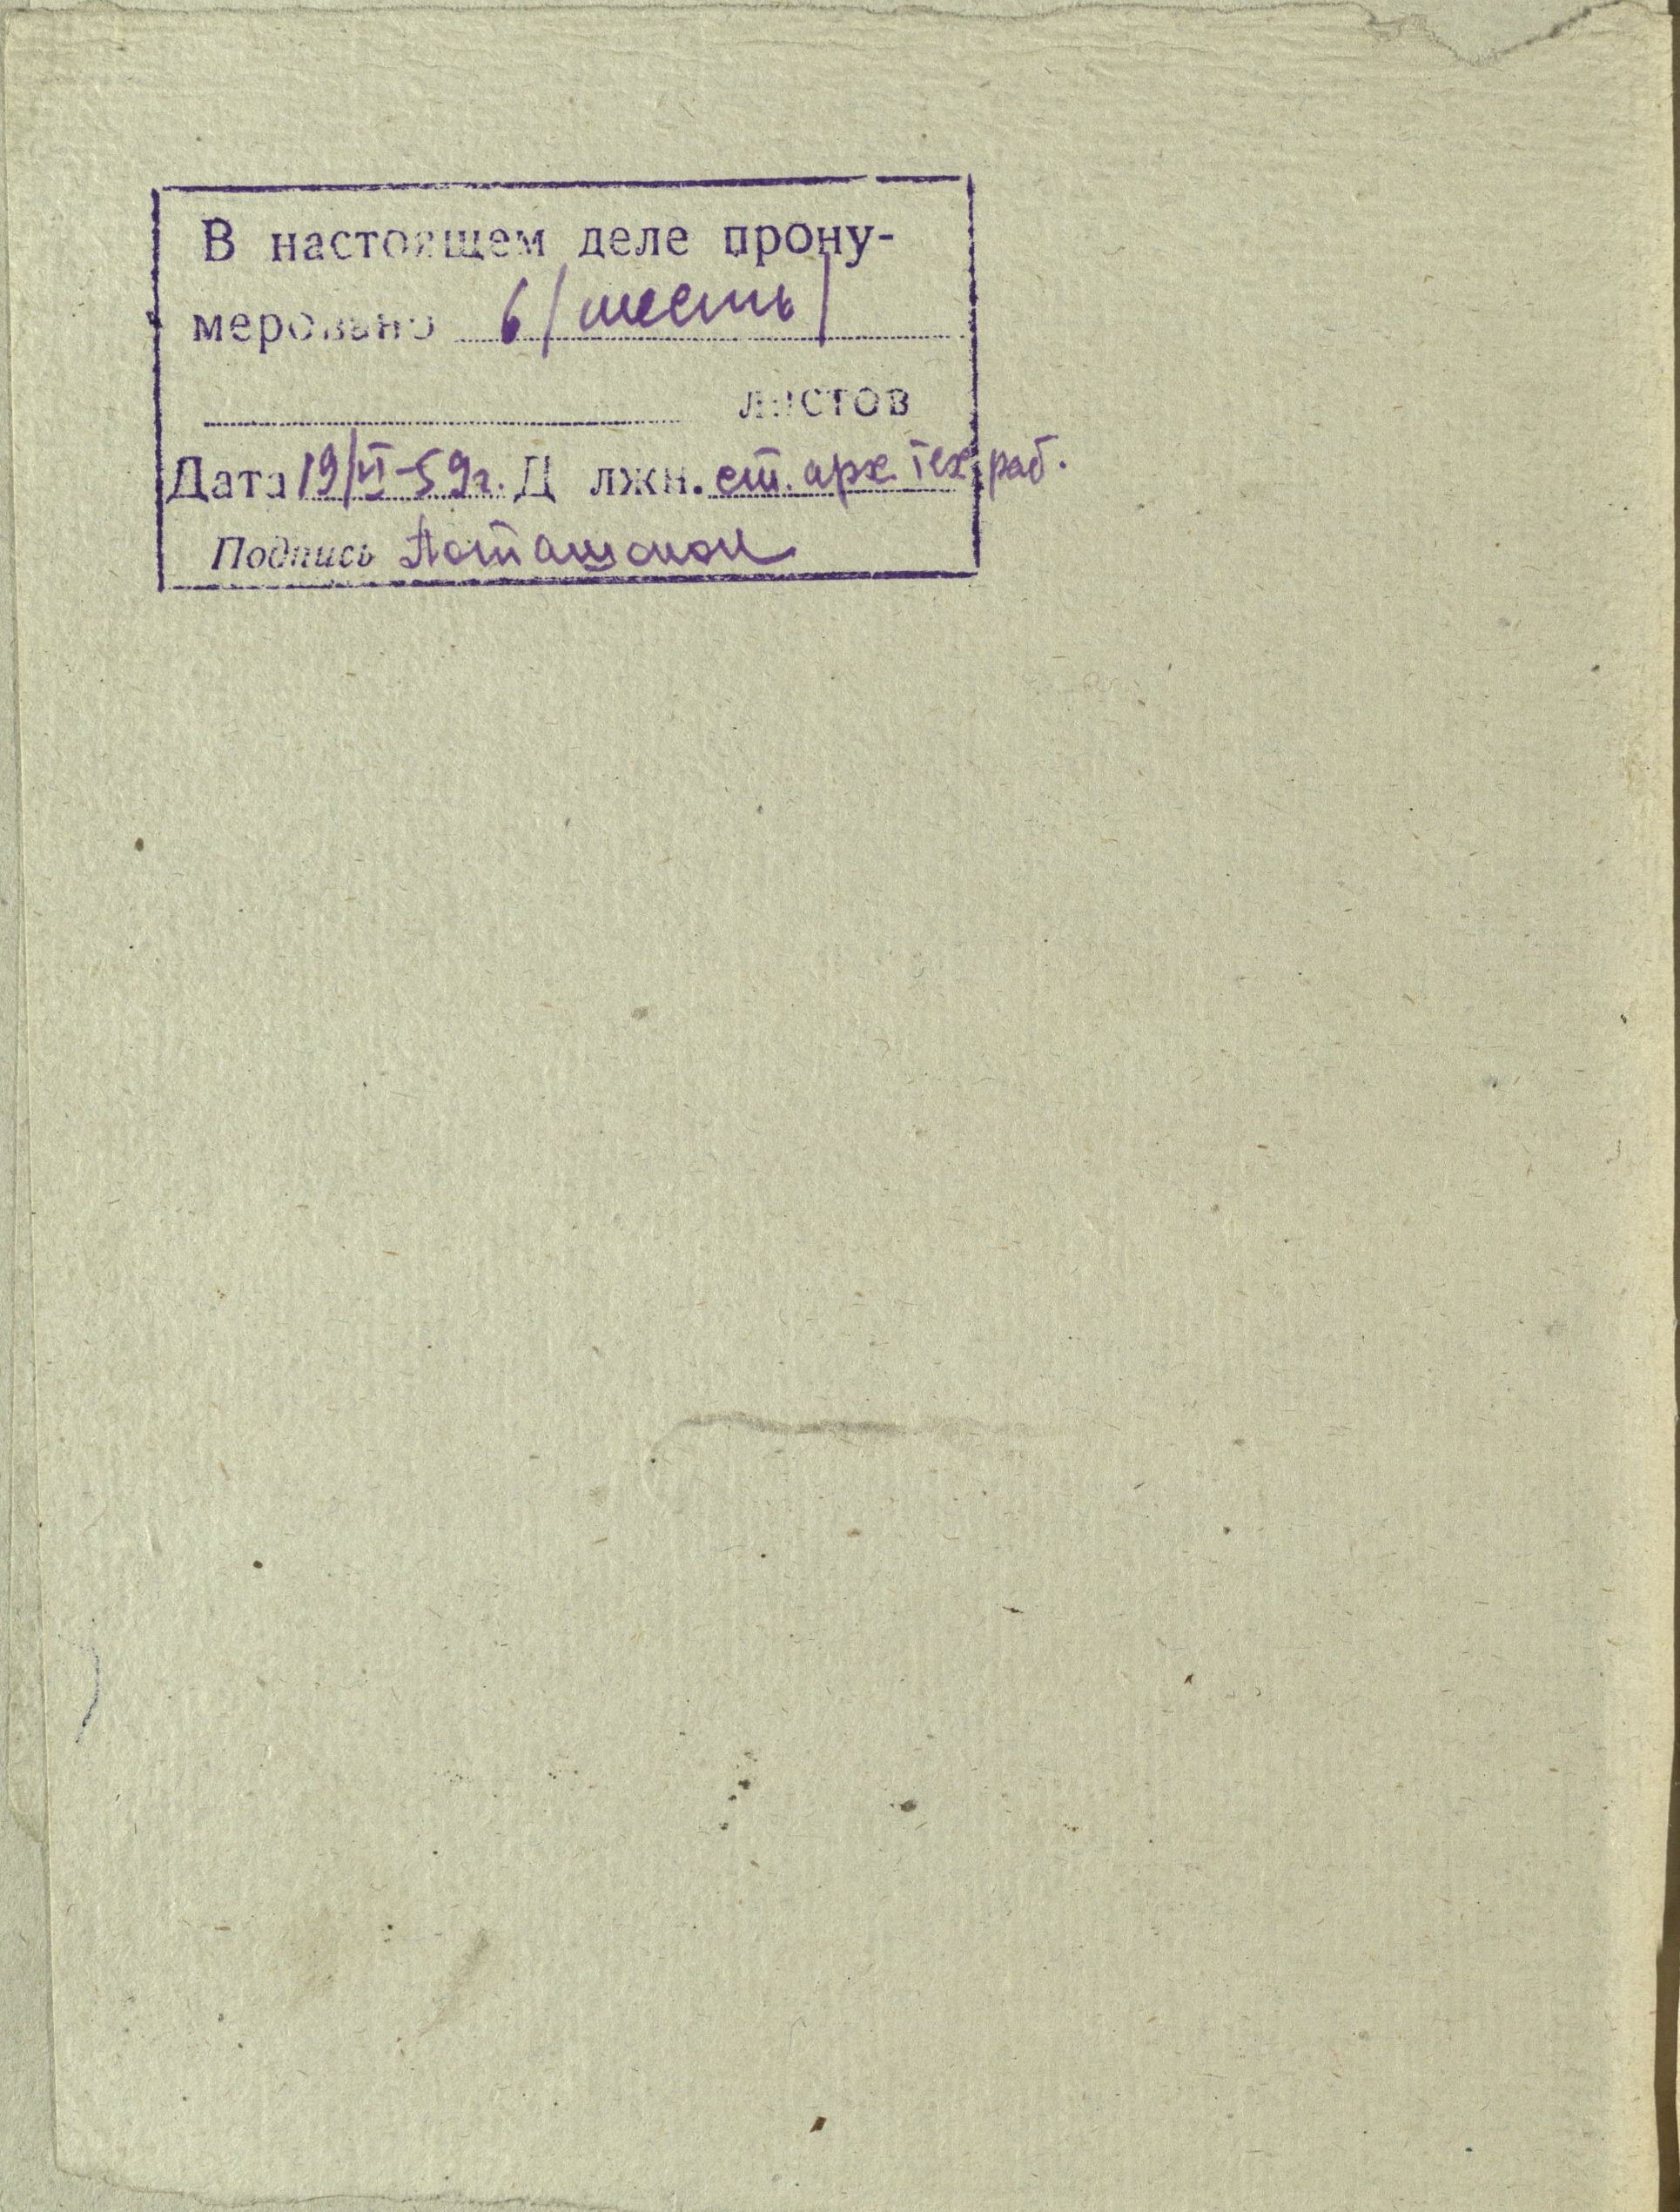 В настоящем деле прону-
меровано 6/шесть/
листов
Дата 19/VI-59г. Должн. ст. арх. тех. раб.
Подпись